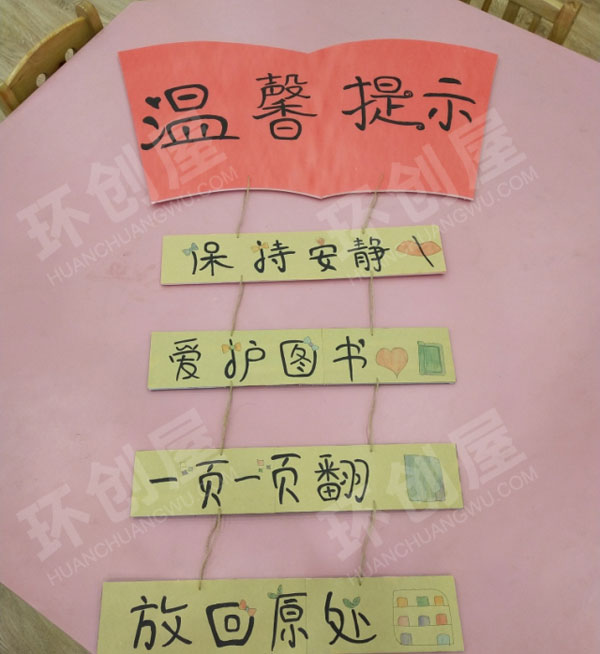 温馨提示
保持安静
爱护图书
一页一页翻
放回原处
环创屋
HUANCHUANGWU.COM
环创屋
HUANCHUANGWU.COM
环创屋
HUANCHUANGWU.COM
环创屋
HUANCHUANGWU.COM